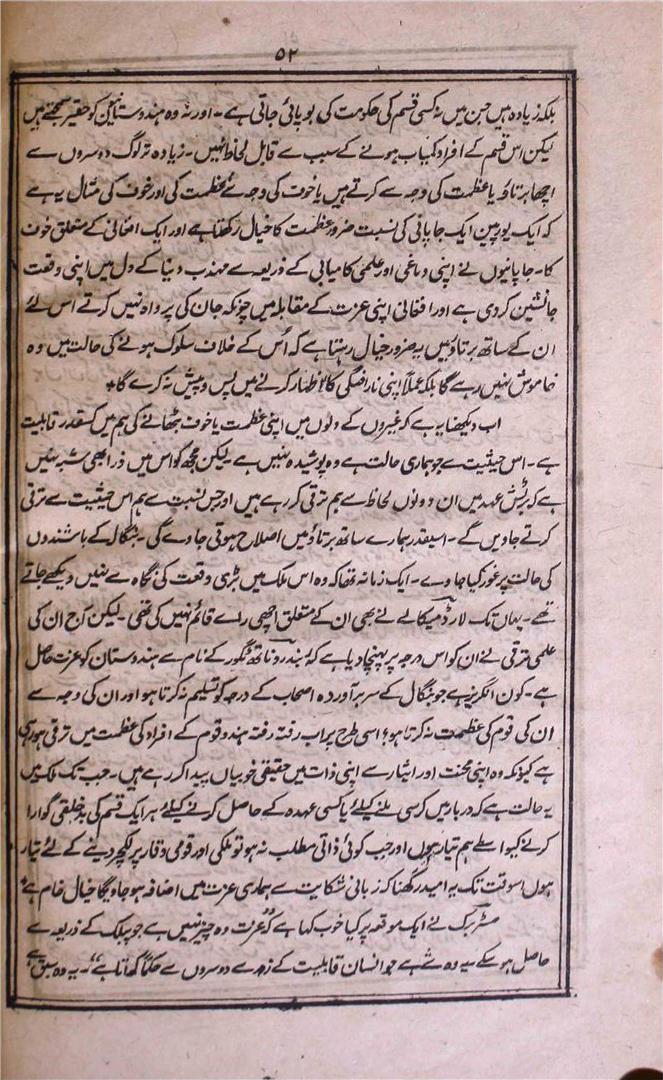 ۵۲
بلکہ زیادہ ہیں جن میں نہ کسی قسم کی حکومت کی بو پائی جاتی ہے ۔ اور نہ وہ ہندوستانیوں کو حقیر سمجھتے ہیں
لیکن اس قسم کے افراد کمیاب ہونے کے سبب سے قابل لحاظ نہیں ۔ زیادہ تر لوگ دوسروں سے
اچھا برتاؤ یا عظمت کی وجہ سے کرتے ہیں یا خوف کی وجہ سے عظمت کی اور خوف کی مثال یہ ہے
کہ ایک یورپین ایک جاپانی کی نسبت ضرور عظمت کا خیال رکھتا ہے اور ایک افغانی کے متعلق خوف
کا ۔ جاپانیوں نے اپنی دماغی اور علمی کامیابی کے ذریعہ سے مہذب دنیا کے دل میں اپنی وقعت
جانشین کردی ہے اور افغانی اپنی عزت کے مقابلہ میں چونکہ جان کی پرواہ نہیں کرتے اس لئے
ان کے ساتھ برتاؤ میں یہ ضرور خیال رہتا ہے کہ اُس کے خلاف سلوک ہونے کی حالت میں وہ
خاموش نہیں رہے گا بلکہ عملاً اپنی ناراضگی کا اظہار کرنے میں پس و پیش نہ کرے گا +
اب دیکھنا یہ ہے کہ غیروں کے دلوں میں اپنی عظمت یا خوف بٹھانے کی ہم میں کسقدر قابلیت
ہے ۔ اس حیثیت سے جو ہماری حالت ہے وہ پوشیدہ نہیں ہے ۔ لیکن مجھ کو اس میں ذرا بھی شبہ نہیں
ہے کہ برٹش عہد میں ان دونوں لحاظ سے ہم ترقی کر رہے ہیں اور جس نسبت سے ہم اس حیثیت سے ترقی
کرتے جاویں گے ۔ اسیقدر ہمارے ساتھ برتاؤ میں اصلاح ہوتی جاوے گی ۔ بنگال کے باشندوں
کی حالت پر غور کیا جاوے ۔ ایک زمانہ تھا کہ وہ اس ملک میں بڑی وقعت کی نگاہ سے نہیں دیکھے جاتے
تھے ۔ یہاں تک لارڈ میکالے نے بھی ان کے متعلق اچھی رائے قائم نہیں کی تھی ۔ لیکن آج ان کی
علمی ترقی نے ان کو اس درجہ پر پہنچا دیا ہے کہ بندروناتھ ٹگور کے نام سے ہندوستان کو عزت حاصل
ہے ۔ کون انگریز ہے جو بنگال کے سربرآوردہ اصحاب کے درجہ کو تسلیم نہ کرتا ہو اور ان کی وجہ سے
ان کی قوم کی عظمت نہ کرتا ہو ؛ اسی طرح پر اب رفتہ رفتہ ہندو قوم کے افراد کی عظمت میں ترقی ہو رہی
ہے کیونکہ وہ اپنی محنت اور ایثار سے اپنی ذات میں حقیقی خوبیاں پیدا کر رہے ہیں ۔ جب تک ملک میں
یہ حالت ہے کہ دربار میں کرسی ملنے کیلئے یا کسی عہدہ کے حاصل کرنے کیلئے ہر ایک قسم کی بدخلقی گوارا
کرنے کیواسطے ہم تیار ہوں اور جب کوئی ذاتی مطلب نہ ہو تو ملکی اور قومی وقار پر لکچر دینے کے لئے تیار
ہوں اسوقت تک یہ امید رکھنا کہ زبانی شکایت سے ہماری عزت میں اضافہ ہو جاویگا خیال خام ہے +
مسٹر برک نے ایک موقعہ پر کیا خوب کہا ہے کہ "عزت وہ چیز نہیں ہے جو پبلک کے ذریعہ سے
حاصل ہو سکے یہ وہ شے ہے جو انسان قابلیت کے زور سے دوسروں سے حکماً کھاتا ہے" ۔ یہ وہ سبق ہے